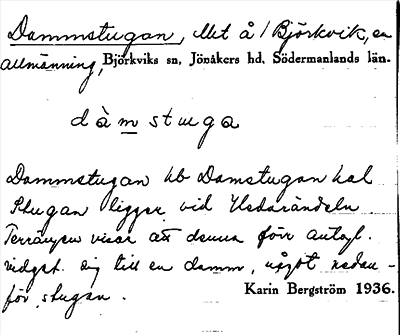 Dammstugan, llet å / Björkvik, en
allmänning, Björkviks sn, Jönåkers hd, Södermanlands län.
dàm stuga
Dammstugan kb Damstugan kal
Stugan ligger vid Hedarändeln
Terrängen visar att denna förr antagl.
vidgat sig till en damm, något nedan-
för stugan.
Karin Bergström 1936.